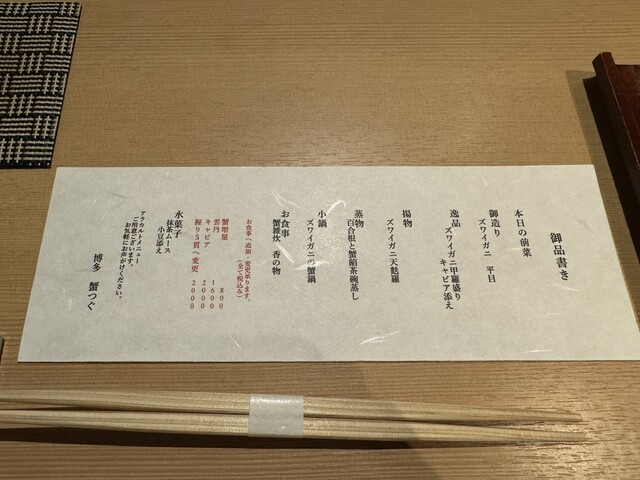 御品書き
本日の前菜
御造り
ズワイガニ　平目
逸品
ズワイガニ甲羅盛り
キャビア添え
揚物
ズワイガニ天麩羅
蒸物
百合根と蟹餡茶碗蒸し
小鍋
ズワイガニの蟹鍋
お食事
蟹雑炊　香の物
お食事へ追加・変更承ります。
(全て税込み)
蟹増量　800
雲丹　1600
キャビア　2000
握り5貫へ変更　2000
水菓子
抹茶ムース
小豆添え
アラカルトメニュー
ご用意ございます。
お気軽にお声がけください。
博多　蟹つぐ